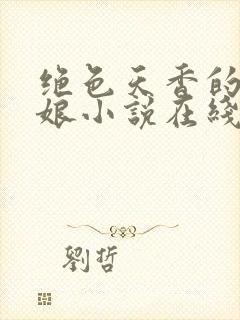 绝色天香的
娘小说在线
劉哲